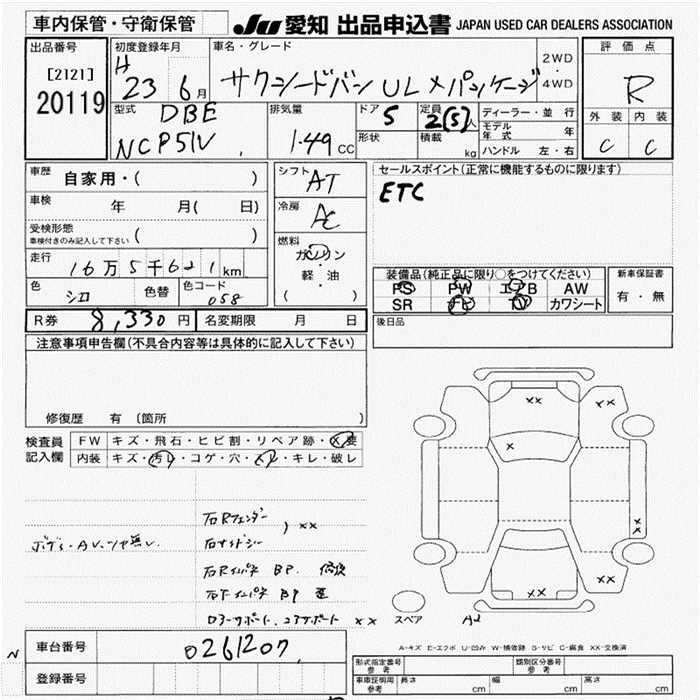 車内保管・守衛保管
JU 愛知 出品申込書 JAPAN USED CAR DEALERS ASSOCIATION
出品番号
[2121]
20119
初度登録年月
H 23 6月
車名・グレード
サクシードバン UL Xパッケージ
2WD
4WD
評価点
R
型式
DBE
NCP51V
排気量
1.49 CC
ドア 5
形状
定員 2(5)人
積載 kg
ディーラー・並行
モデル年式 年
ハンドル 左・右
外装 内装
C C
車歴 自家用・( )
車検 年 月( 日)
受検形態 ( )
車検付きのみ記入して下さい
走行 16万5千621km
色 シロ 色替
色コード 058
シフト AT
冷房 AC
燃料
ガソリン
軽・油
( )
セールスポイント(正常に機能するものに限ります)
ETC
装備品(純正品に限り○をつけてください)
PS PW エアB AW
SR ナビ TV カワシート
新車保証書
有・無
R券 8,330円 名変期限 月 日
後日品
注意事項申告欄(不具合内容等は具体的に記入して下さい)
修復歴 有 〔箇所 〕
検査員
記入欄
FW キズ・飛石・ヒビ割・リペア跡・X要
内装 キズ・汚レ・コゲ・穴・スレ・キレ・破レ
右Rフェンダー
右サイドシー
) XX
右Rインパネ BP 修復
XX
XX
X
XX
XX
XX
スペア
A-キズ E-エクボ U-凹み W-補修跡 S-サビ C-腐食 XX-交換済
車台番号 0261207
登録番号
形式指定番号
参考
類別区分番号
参考
車庫証明用
参考
長さ cm 幅 cm 高さ cm